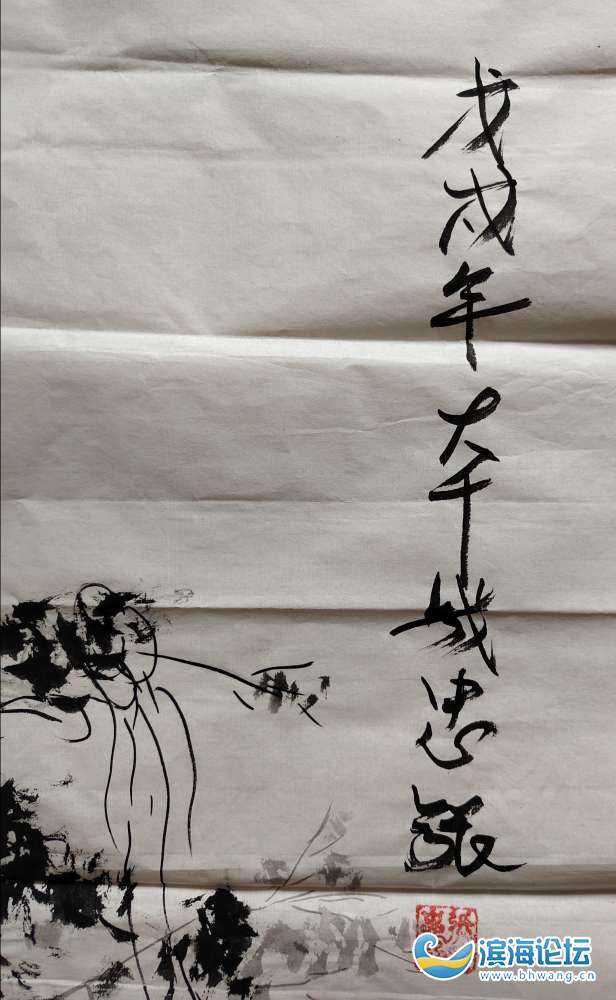 戊戌年大千城忠
滨海论坛
www.bhwang.cn